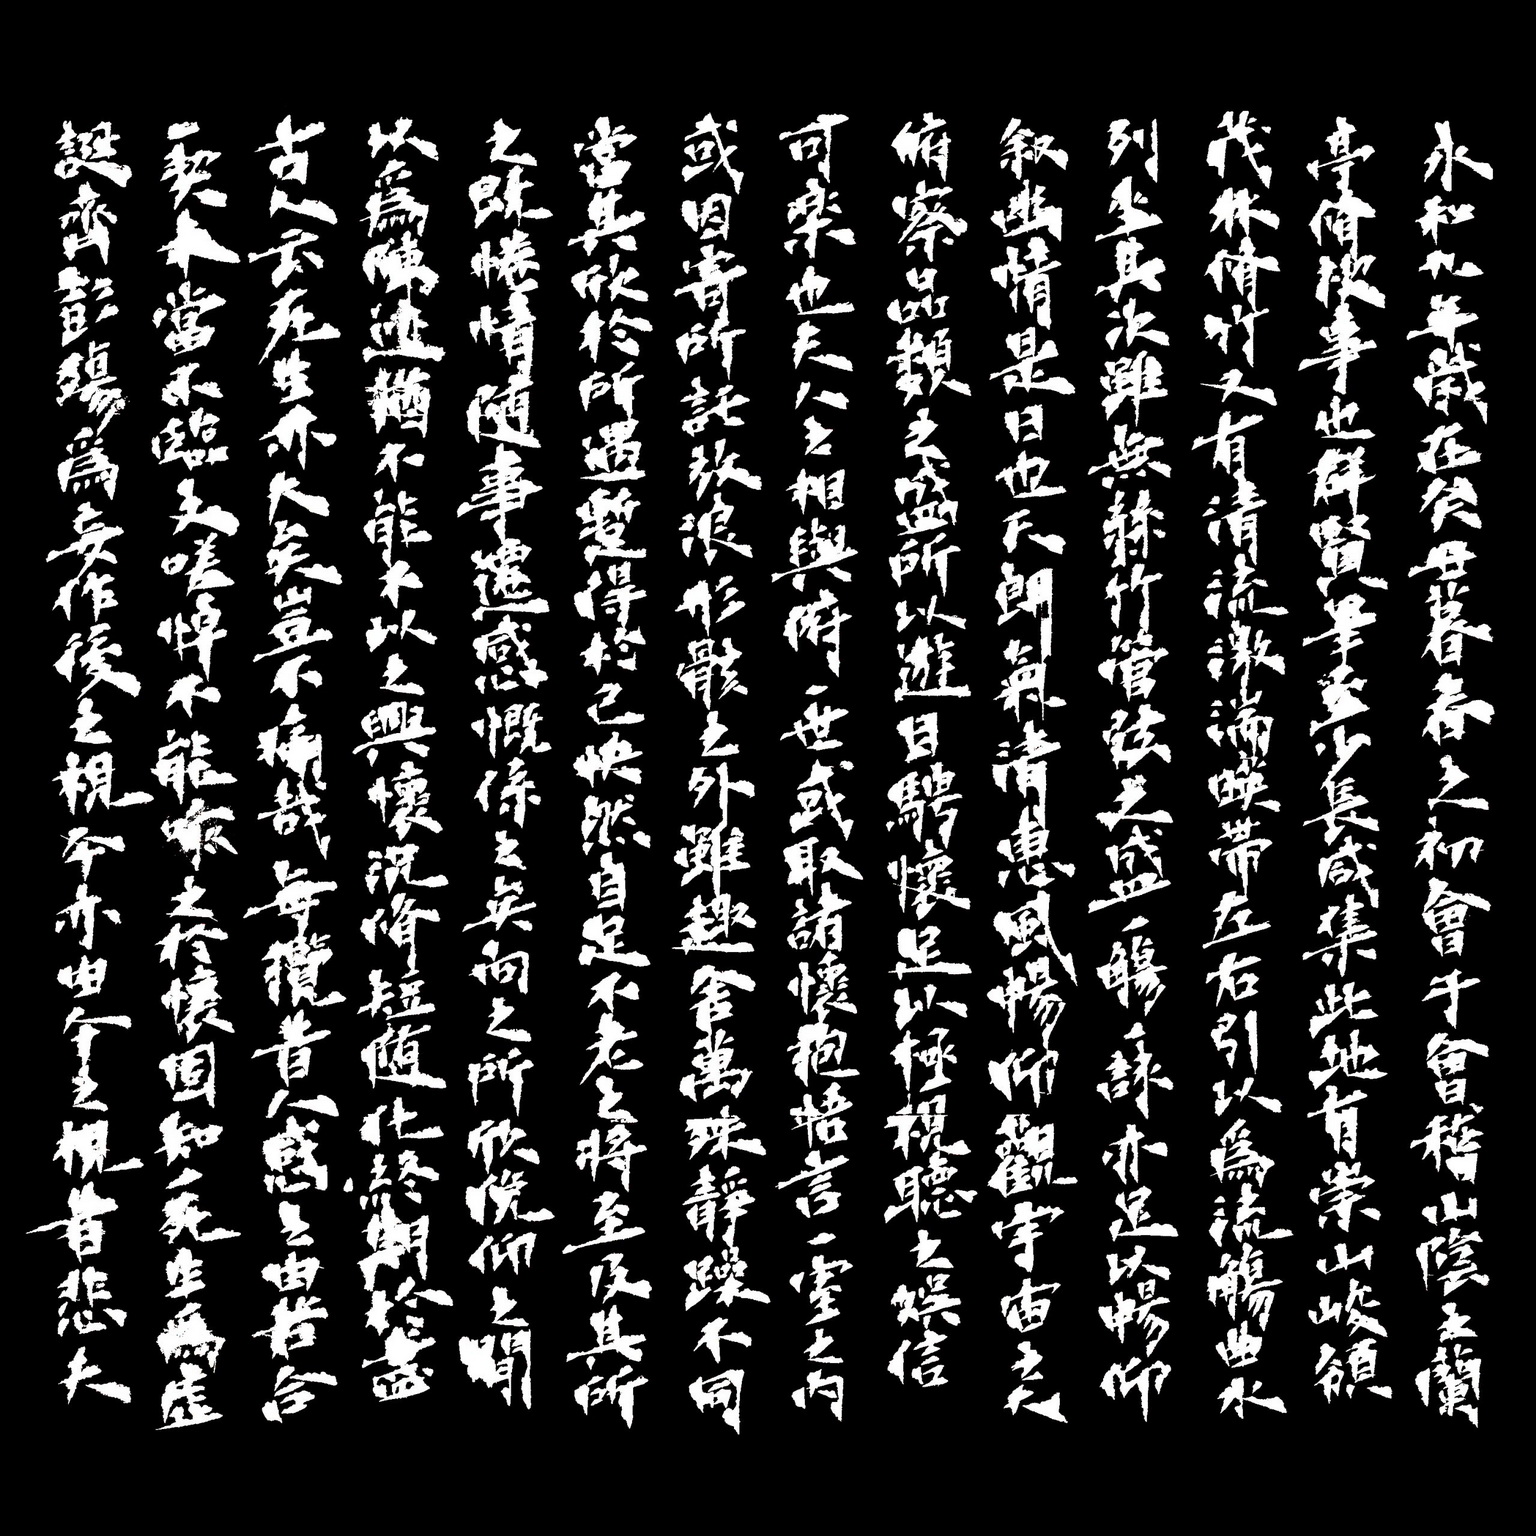 永和九年歲在癸丑暮春之初會于會稽山陰之蘭
亭脩禊事也群賢畢至少長咸集此地有崇山峻領
茂林脩竹又有清流激湍暎帶左右引以為流觴曲水
列坐其次雖無絲竹管弦之盛一觴一詠亦足以暢仰
叙幽情是日也天朗氣清惠風暢仰觀宇宙之大
俯察品類之盛所以遊目騁懷足以極視聽之娛信
可樂也夫人之相與俯一世或取諸懷抱悟言一室之內
或因寄所託放浪形骸之外雖趣舍萬殊靜躁不同
當其欣於所遇蹔得於己快然自足不老之將至及其所
之既惓情隨事遷感慨係之矣向之所欣俛仰之間
以為陳迹猶不能不以之興懷況脩短隨化終期於盡
古人云死生亦大矣豈不痛哉每攬昔人感之由若合
一契未嘗不臨文嗟悼不能喻之於懷固知一死生為虛
誕齊彭殤為妄作後之視今亦由今之視昔悲夫